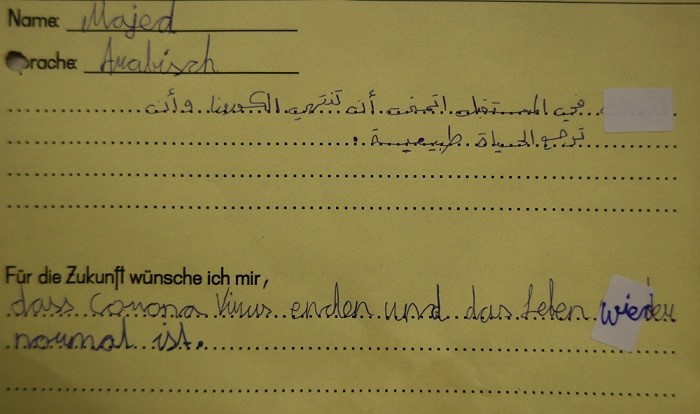 Name: Majed
Sprache: Arabisch
في المستقبل اتمنى أن تنتهي الكورونا وأن
ترجع الحياة طبيعية.
Für die Zukunft wünsche ich mir,
dass Corona Virus enden und das Leben wieder
normal ist.